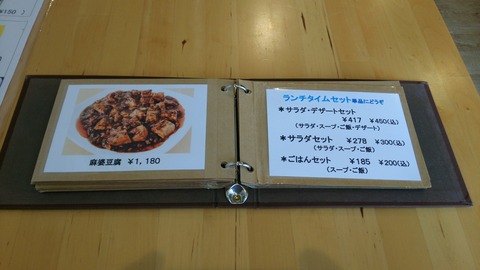 ¥150 )
麻婆豆腐 ¥1,180
ランチタイムセット 単品にどうぞ
*サラダ・デザートセット
¥417 ¥450(込)
(サラダ・スープ・ご飯・デザート)
*サラダセット ¥278 ¥300(込)
(サラダ・スープ・ご飯)
*ごはんセット ¥185 ¥200(込)
(スープ・ご飯)